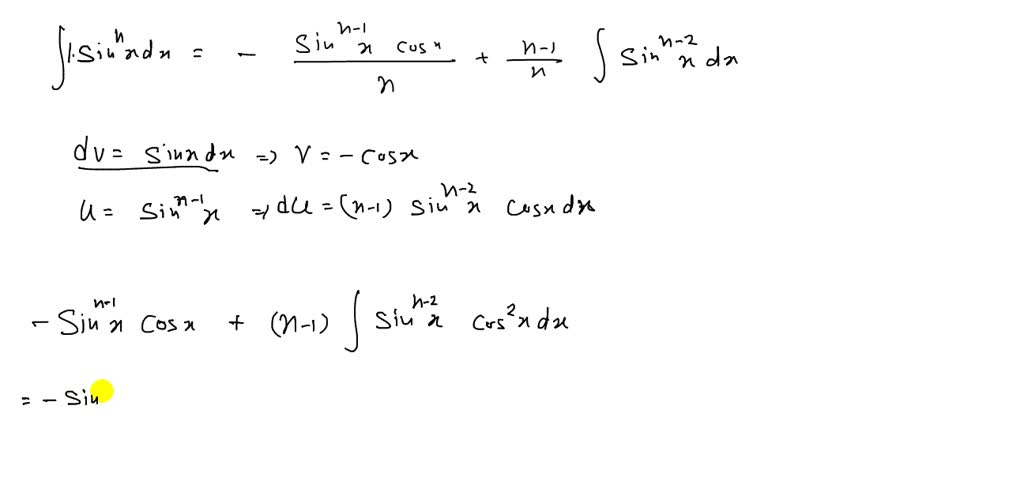 ∫1·sinⁿx dx = - (sinⁿ⁻¹x cosx)/n + (n-1)/n ∫ sinⁿ⁻²x dx
dv = sinx dx => v = -cosx
u = sinⁿ⁻¹x => du = (n-1) sinⁿ⁻²x cosx dx
- sinⁿ⁻¹x cosx + (n-1) ∫ sinⁿ⁻²x cos²x dx
= - sin